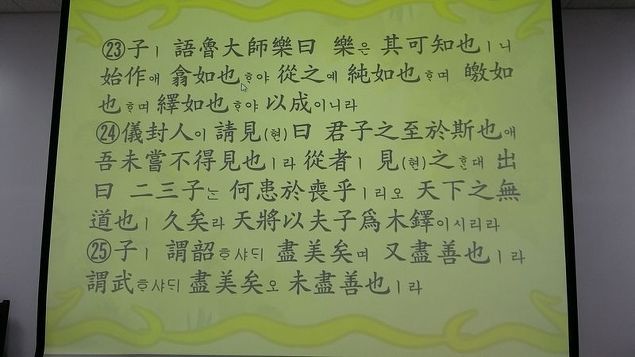 ㉓子ㅣ 語魯大師樂曰 樂은 其可知也ㅣ니
始作애 翕如也ᄒᆞ야 從之에 純如也ᄒᆞ며 皦如
也ᄒᆞ며 繹如也ᄒᆞ야 以成이니라
㉔儀封人이 請見(현)曰 君子之至於斯也애
吾未嘗不得見也ㅣ라 從者ㅣ 見(현)之ᄒᆞᆫ대 出
曰 二三子ᄂᆞᆫ 何患於喪乎ㅣ리오 天下之無
道也ㅣ 久矣라 天將以夫子爲木鐸이시리라
㉕子ㅣ 謂韶ᄒᆞ샤ᄃᆡ 盡美矣며 又盡善也ㅣ라
謂武ᄒᆞ샤ᄃᆡ 盡美矣오 未盡善也ㅣ라